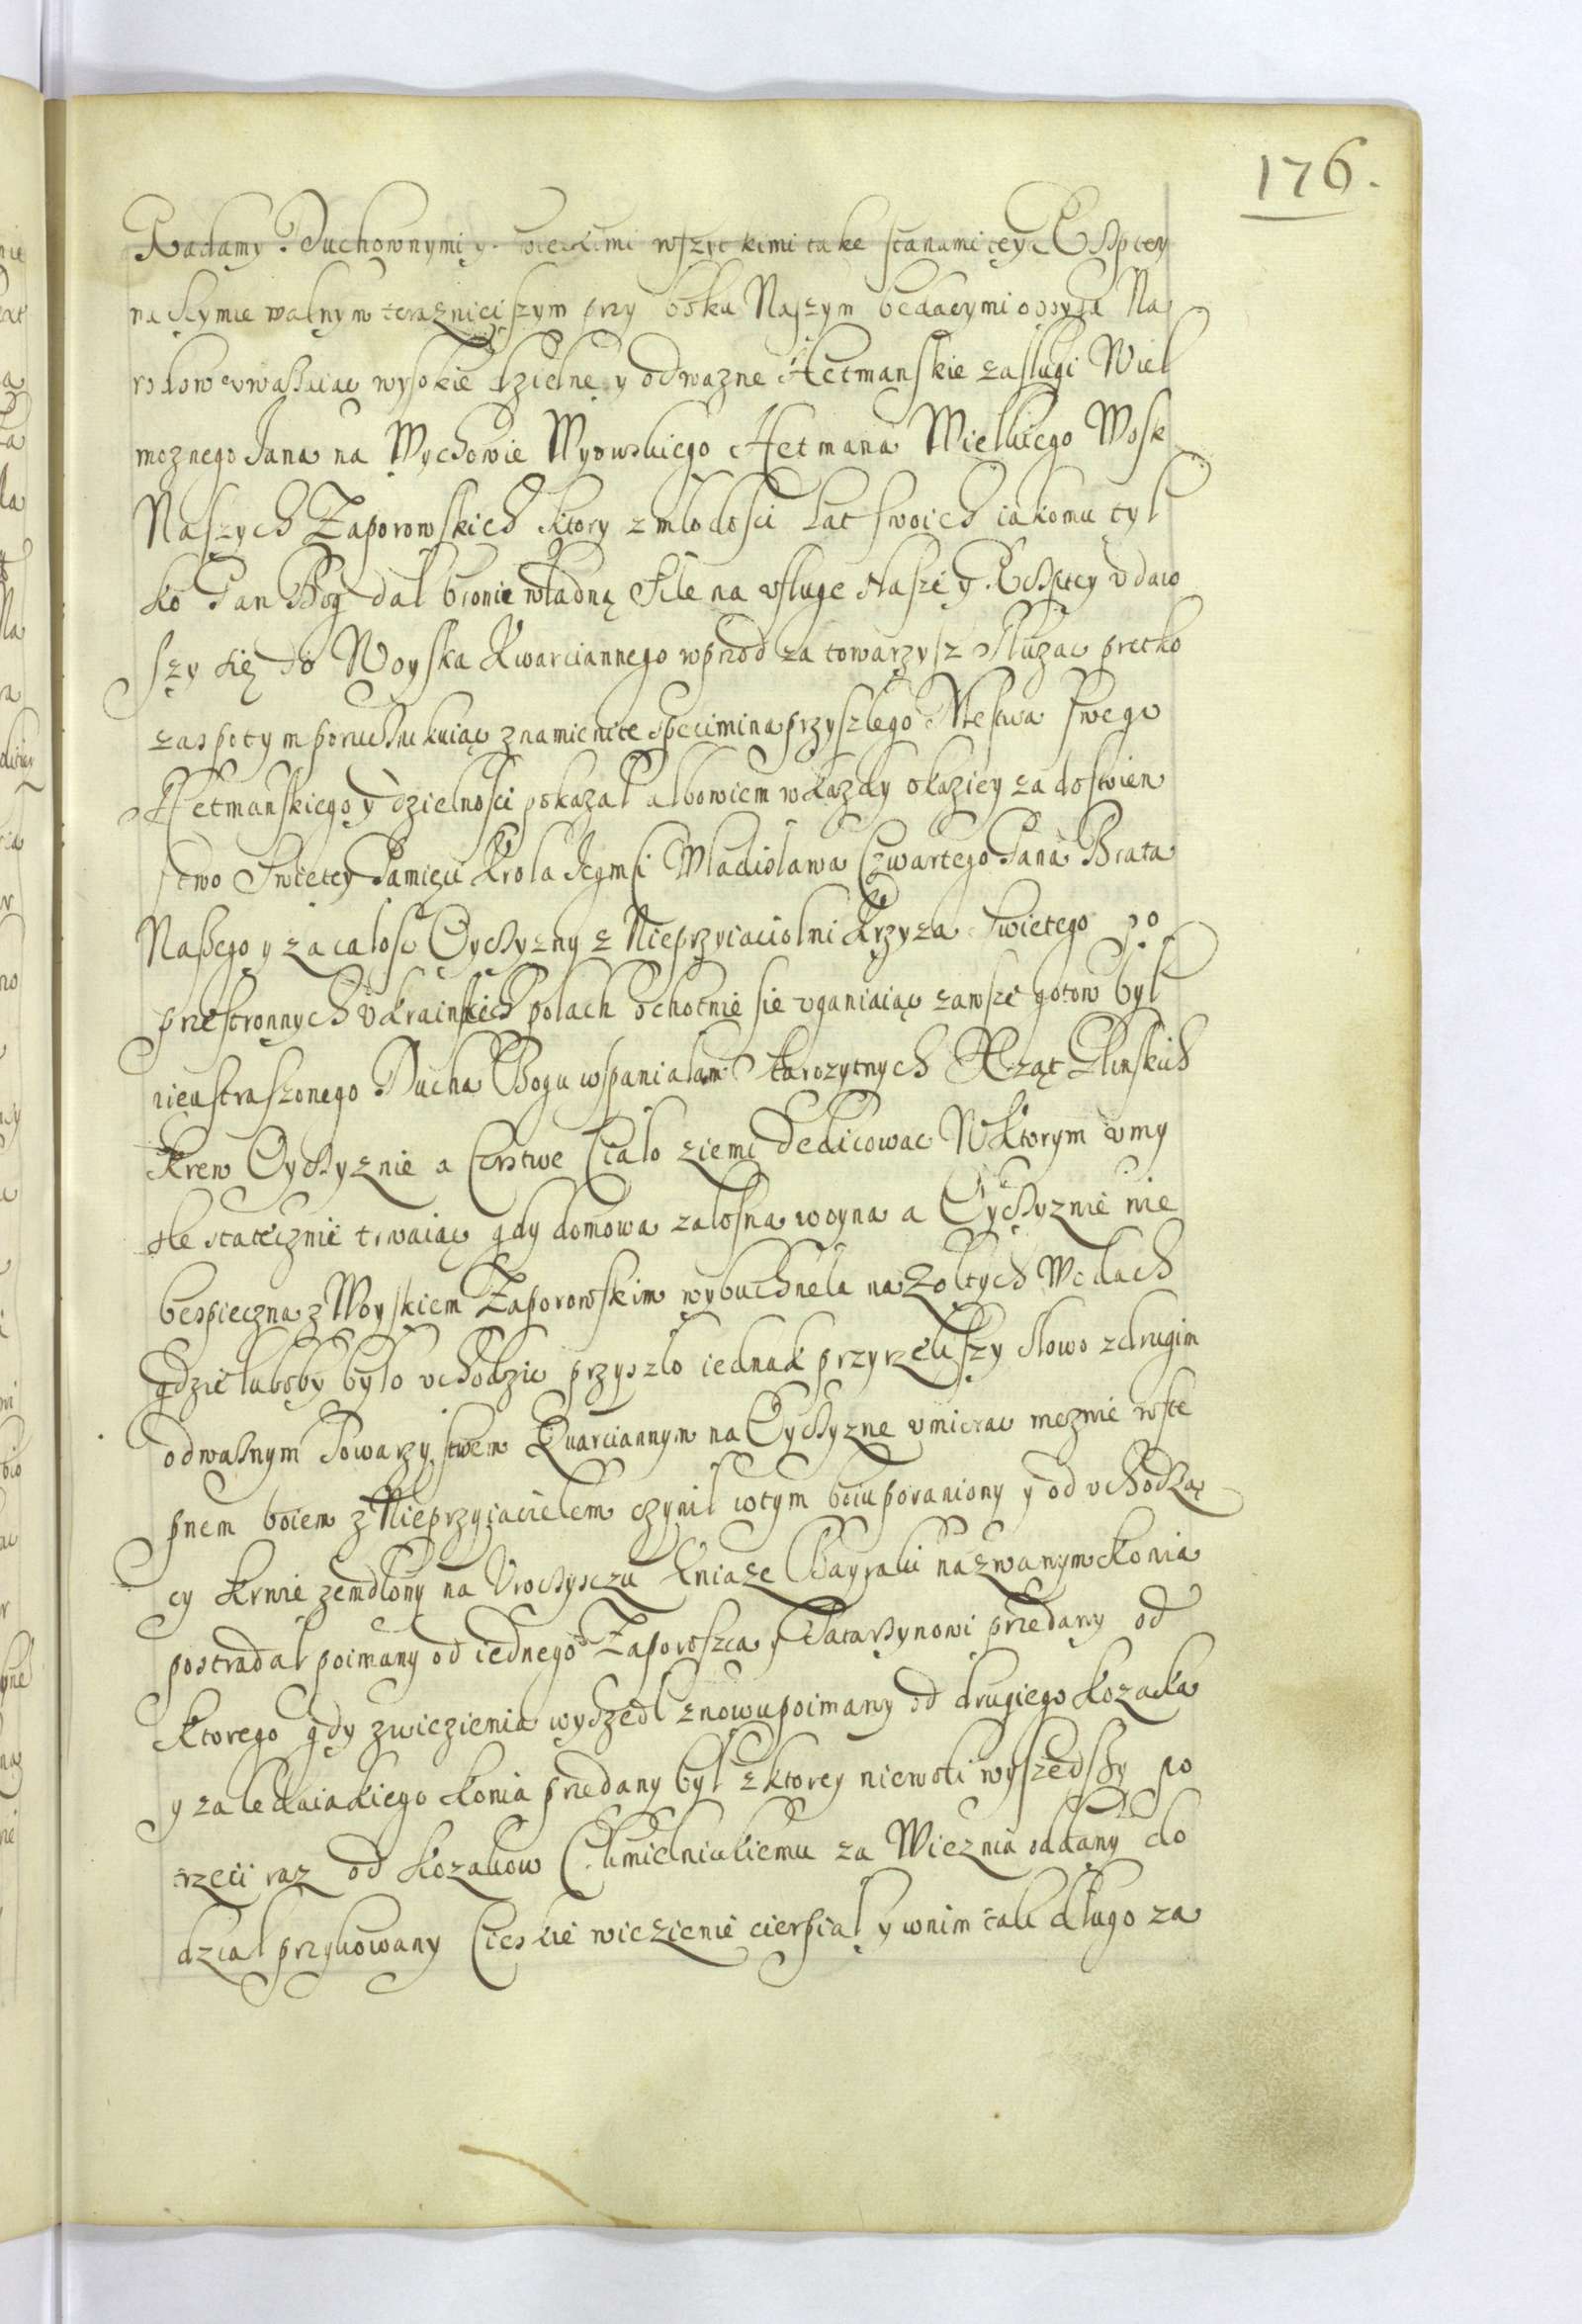 176.
Radamy Duchownymi y swieckimi wszytkimi take stanami tey RSsptey
na Seymie walnym teraznieiszym przy boku Naszym bedacymi oboyga Na
rodow uwazaiac wysokie dzielne y odwazne Hetmanskie zaslugi Wiel
moznego Jana na Wychowie Wyowskiego Hetmana Wielkiego Wosk
Naszych Zaporowskich ktory z mlodosci Lat swoich iakomu tyl
ko Pan Bog dal bronie wladną Sile na usluge Nasze y RSsptey udaw
szy się do Woyska Kwarciannego wprzod za towarzysz sluzac pretko
zas potym poruchnikuiąc znamienite specimina przyszlego Mestwa swego
Hetmanskiego y dzielnosci pokazal albowiem w kazdy okaziey za dostoien
stwo Swietey Pamięci Krola Jegmsci Wladislawa Czwartego Pana Brata
Naszego y za calosc Oychyzny z Nieprzyiaciolmi Krzyza Swietego po
przestronnych Ukrainskich polach ochotnie sie uganiaiąc zawsze gotow byl
nieustraszonego Ducha Bogu wspanialam starozytnych Xząt Glinskich
Krew Oychyznie a Czerstwe Cialo ziemi dedicowac W ktorym umy
sle statecznie trwaiąc gdy domowa zalosna woyna a Oychyznie nie
bespieczna z Woyskiem Zaporowskim wybuchnela na Zoltych Wodach
gdzie luboby bylo uchodzic przyszlo iednak przyrzekszy Slowo z drugim
odwaznym Towarzystwem Quarciannym na Oychyzne umierac meznie wste
pnem boiem z Nieprzyiacielem czynil w tym boiu poraniony y od uchodzą
cy krwie zemdlony na Uroczysczu Kniaze Bayraki nazwanym konia
postradal poimany od iednego Zaporoszca y Tatarzynowi przedany od
ktorego gdy z wiezienia wyszedl znowu poimany od drugiego kozacka
y za ledaiakiego konia przedany byl z ktorey niewoli wyszedszy po
trzeci raz od kozakow Chmielnickiemu za Wieznia oddany do
dzial przykowany Cieskie wiezienie cierpial y w nim tak dlugo za